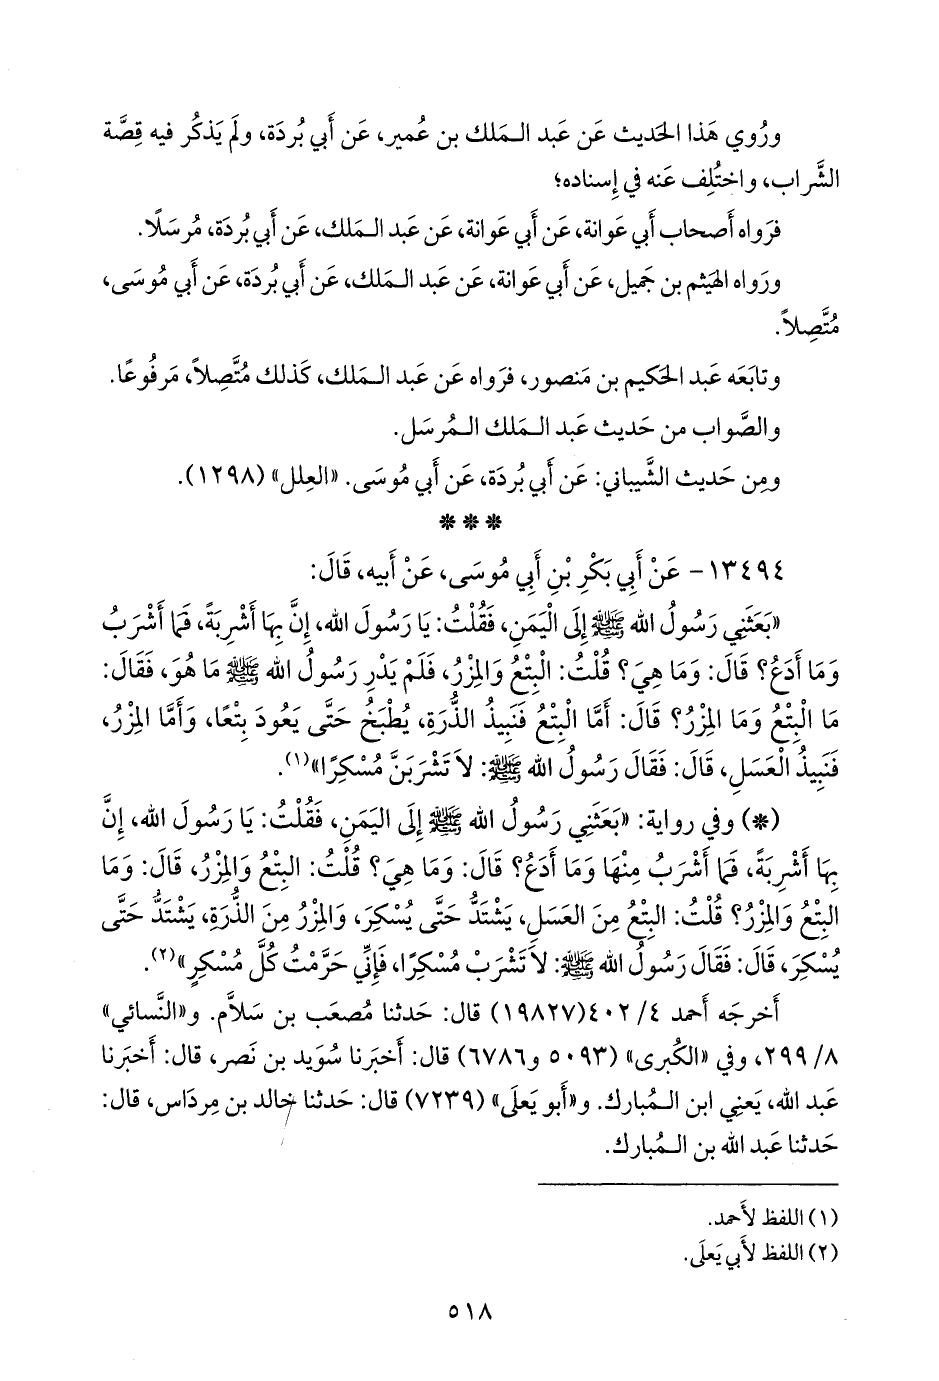 ورُوي هَذا الحَديث عَن عَبد الـمَلك بن عُمير، عَن أَبي بُردَة، ولَم يَذكُر فيه قِصَّة
الشَّراب، واختُلِف عَنه في إِسناده؛
فرَواه أَصحاب أَبي عَوانة، عَن أَبي عَوانة، عَن عَبد الـمَلك، عَن أَبي بُردَة، مُرسَلًا.
ورَواه الهَيثم بن جَميل، عَن أَبي عَوانة، عَن عَبد الـمَلك، عَن أَبي بُردَة، عَن أَبي مُوسَى،
مُتَّصِلاً.
وتابَعَه عَبد الحَكيم بن مَنصور، فرَواه عَن عَبد الـمَلك، كَذلك مُتَّصِلاً، مَرفُوعًا.
والصَّواب من حَديث عَبد الـمَلك الـمُرسَل.
ومِن حَديث الشَّيباني: عَن أَبي بُردَة، عَن أَبي مُوسَى. «العِلل» (١٢٩٨).
* * *
١٣٤٩٤- عَنْ أَبِي بَكْرِ بْنِ أَبِي مُوسَى، عَنْ أَبيه، قَالَ:
«بَعَثَنِي رَسُولُ الله ﷺ إِلَى الْيَمَنِ، فَقُلْتُ: يَا رَسُولَ الله، إِنَّ بِهَا أَشْرِبَةً، فَمَا أَشْرَبُ
وَمَا أَدَعُ؟ قَالَ: وَمَا هِيَ؟ قُلْتُ: الْبِتْعُ وَالمِزْرُ، فَلَمْ يَدْرِ رَسُولُ الله ﷺ مَا هُوَ، فَقَالَ:
مَا الْبِتْعُ وَمَا المِزْرُ؟ قَالَ: أَمَّا الْبِتْعُ فَنَبِيذُ الذُّرَةِ، يُطْبَخُ حَتَّى يَعُودَ بِتْعًا، وَأَمَّا المِزْرُ،
فَنَبِيذُ الْعَسَلِ، قَالَ: فَقَالَ رَسُولُ الله ﷺ: لاَ تَشْرَبَنَّ مُسْكِرًا»(١).
(*) وفي رواية: «بَعَثَنِي رَسُولُ الله ﷺ إِلَى اليَمَنِ، فَقُلْتُ: يَا رَسُولَ الله، إِنَّ
بِهَا أَشْرِبَةً، فَمَا أَشْرَبُ مِنْهَا وَمَا أَدَعُ؟ قَالَ: وَمَا هِيَ؟ قُلْتُ: البِتْعُ وَالمِزْرُ، قَالَ: وَمَا
البِتْعُ وَالمِزْرُ؟ قُلْتُ: البِتْعُ مِنَ العَسَلِ، يَشْتَدُّ حَتَّى يُسْكِرَ، وَالمِزْرُ مِنَ الذُّرَةِ، يَشْتَدُّ حَتَّى
يُسْكِرَ، قَالَ: فَقَالَ رَسُولُ الله ﷺ: لاَ تَشْرَبْ مُسْكِرًا، فَإِنِّي حَرَّمْتُ كُلَّ مُسْكِرٍ»(٢).
أَخرجَه أَحمد ٤/ ٤٠٢(١٩٨٢٧) قال: حَدثنا مُصعَب بن سَلاَّم. و«النَّسائي»
٨/ ٢٩٩، وفي «الكُبرى» (٥٠٩٣ و٦٧٨٦) قال: أَخبَرنا سُوَيد بن نَصر، قال: أَخبَرنا
عَبد الله، يَعنِي ابن الـمُبارك. و«أَبو يَعلَى» (٧٢٣٩) قال: حَدثنا خالد بن مِردَاس، قال:
حَدثنا عَبد الله بن الـمُبارك.
(١) اللفظ لأَحمد.
(٢) اللفظ لأَبي يَعلَى.
٥١٨